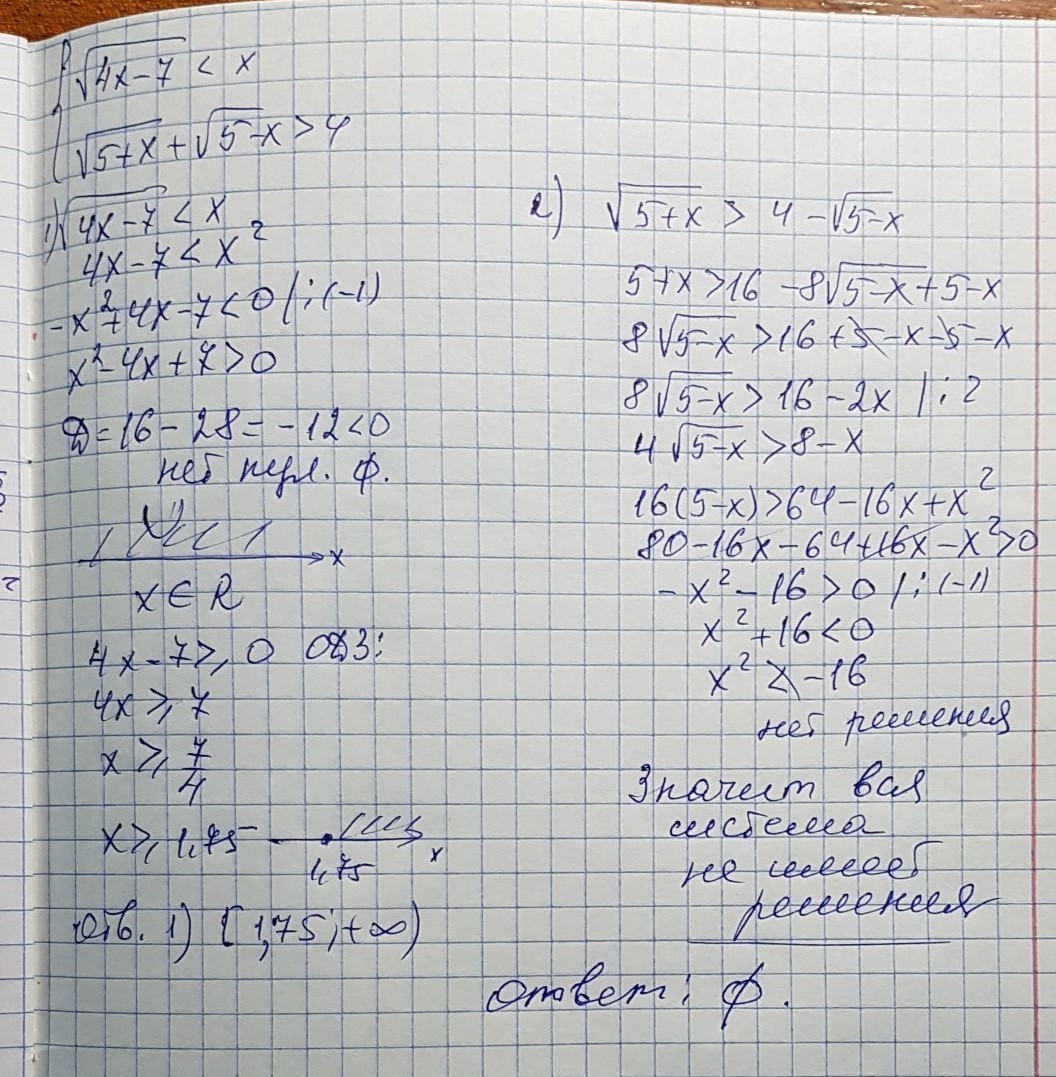 √4x-7 < x
√5+x + √5-x > 4
1) √4x-7 < x
4x-7 < x²
-x²+4x-7<0 |:(-1)
x²-4x+7>0
D=16-28=-12<0
нет
x
x ∈ R
4x-7⩾0 ОДЗ:
4x⩾7
x⩾7/4
x⩾1,75
1,75
x
Отв. 1) [1,75;+∞)
2) √5+x > 4-√5-x
5+x>16-8√5-x+5-x
8√5-x>16+5-x-5-x
8√5-x>16-2x |:2
4√5-x>8-x
16(5-x)>64-16x+x²
80-16x-64+16x-x²>0
-x²-16>0 |:(-1)
x²+16<0
x²<-16
нет решения
Значит вся
система
не имеет
решения
Ответ: ∅.